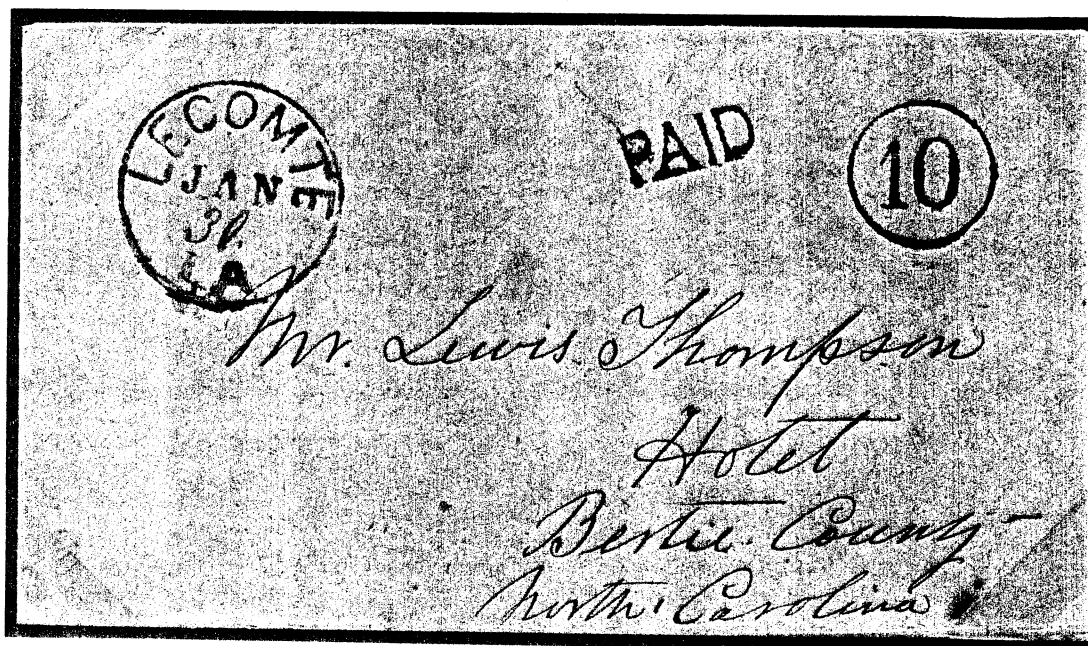 LECOMTE
JAN
30
LA
PAID
10
Mr. Lewis Thompson
Hotel
Bertie County
North Carolina